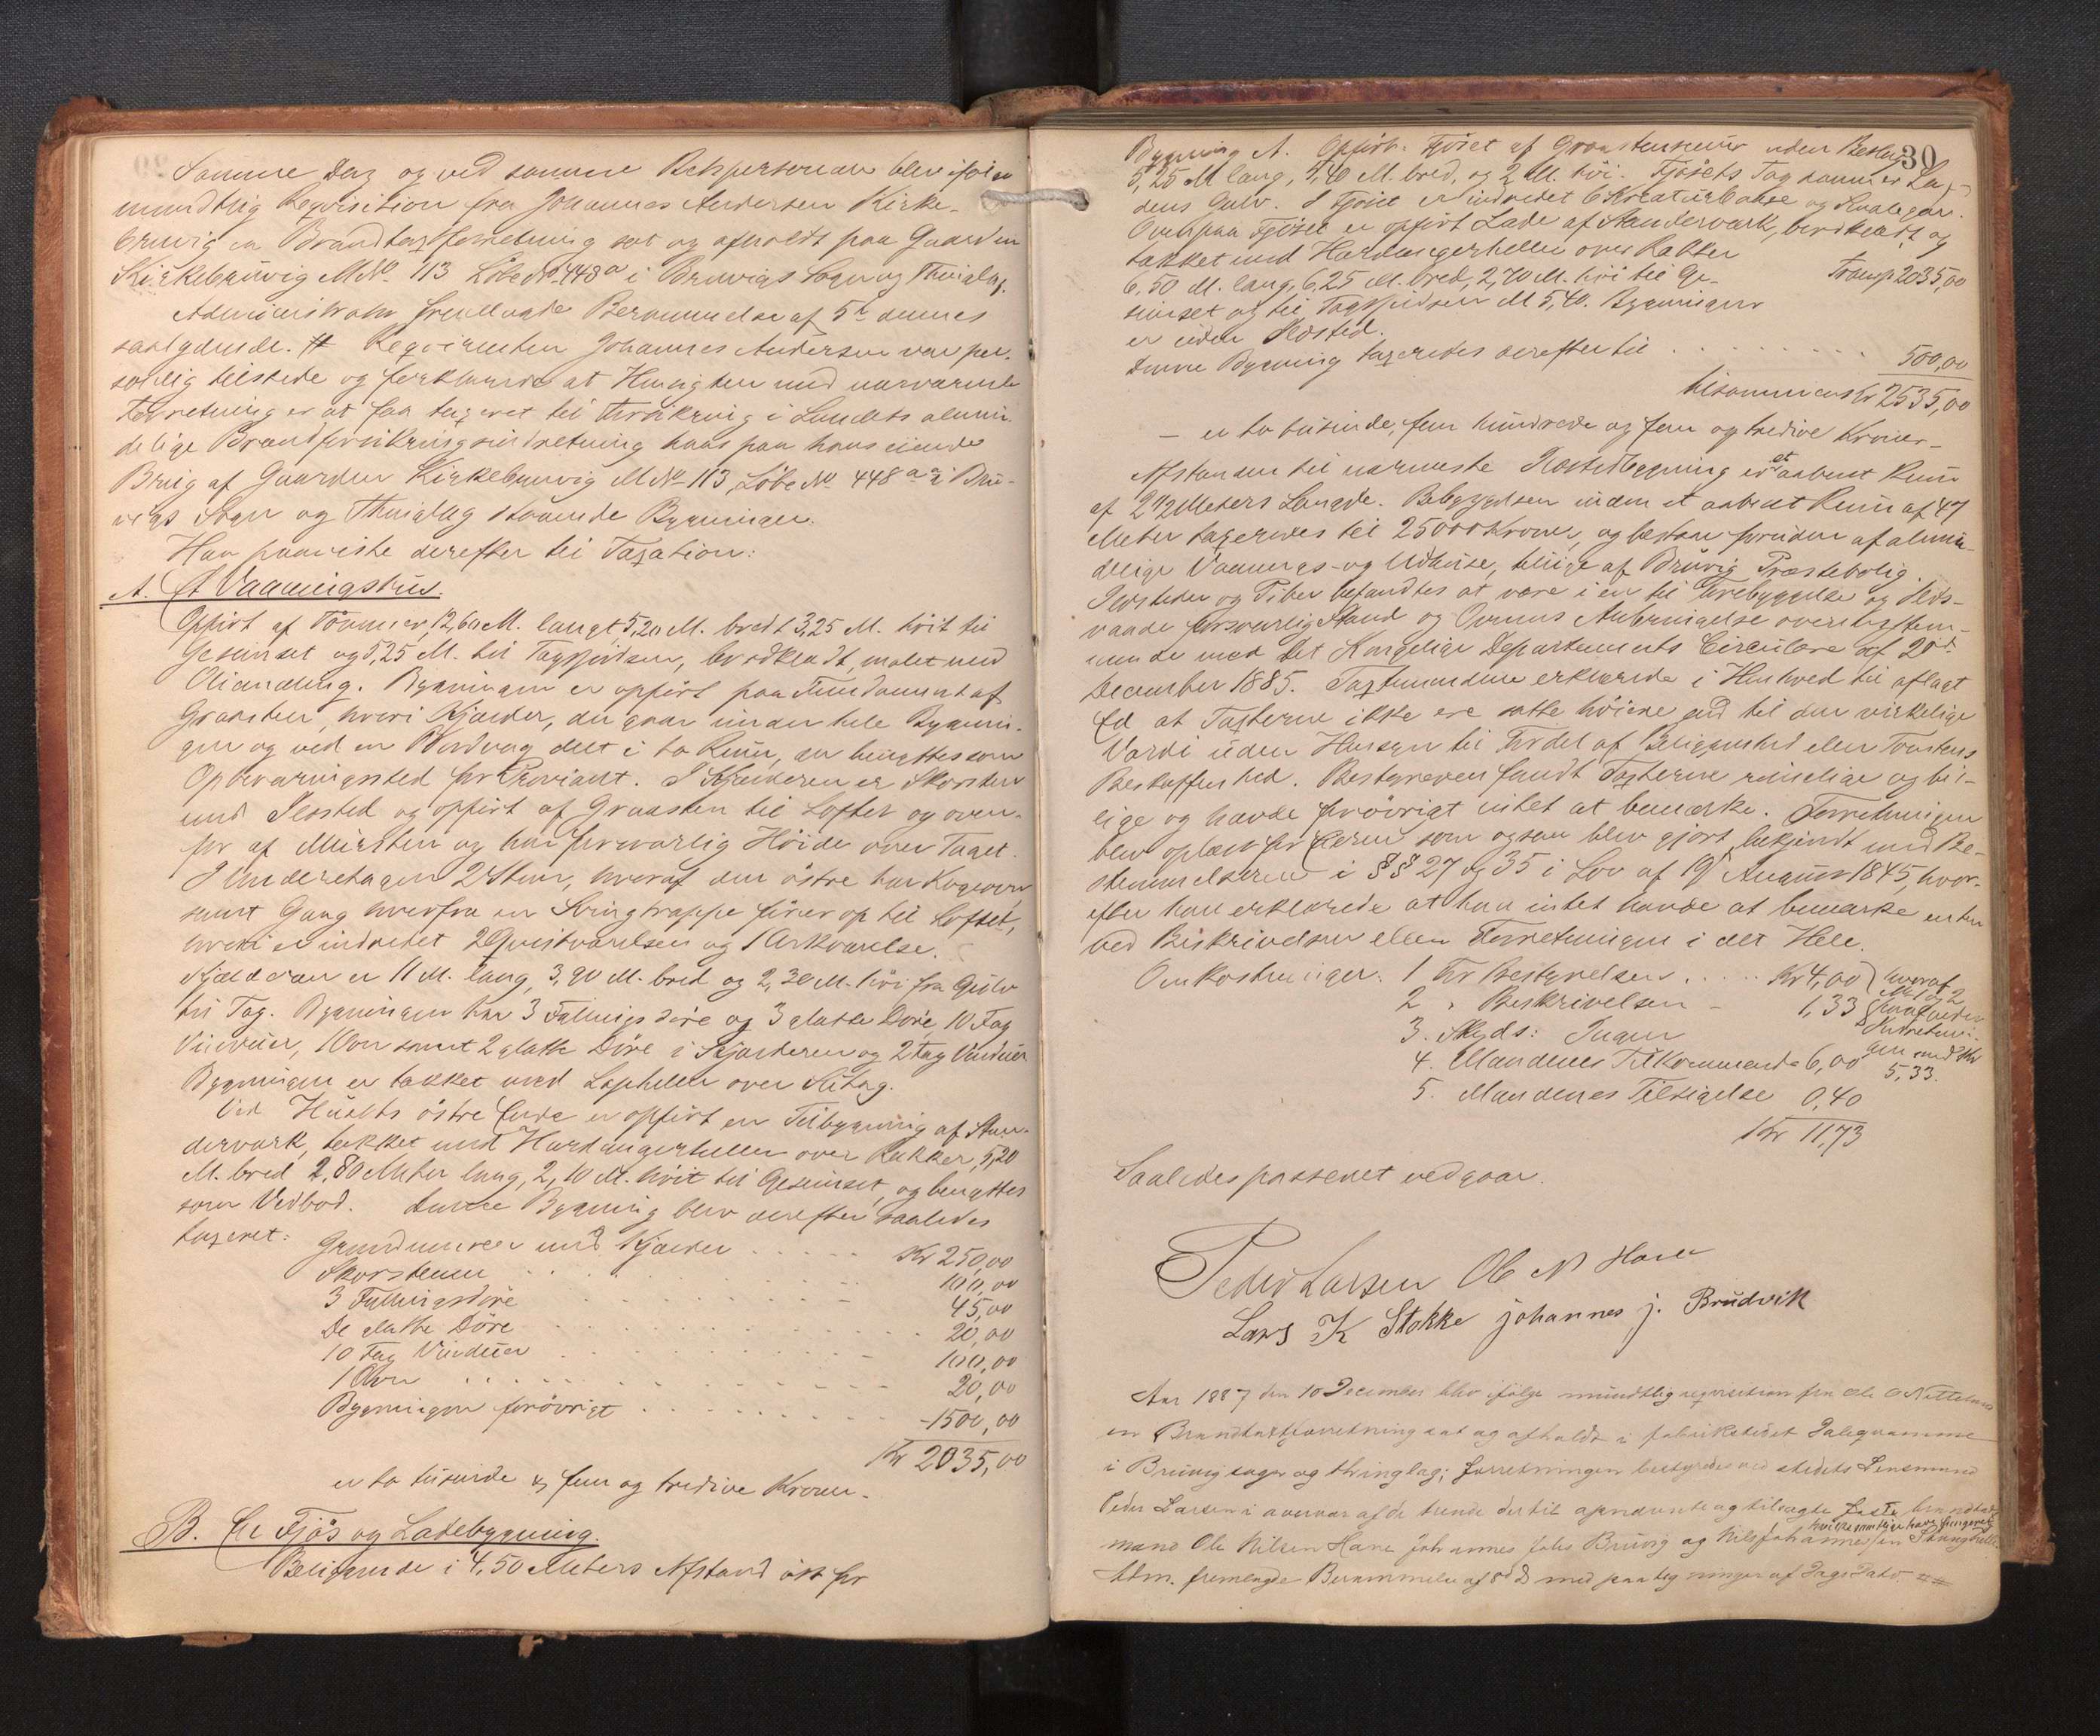 Samme Dag og ved samme Retspersonale blev ifølge
mundtlig Reqvisition fra Johannes Andersen Kirke-
bruvig en Brandtaxtforretning sat og afholdt paa Gaarden
Kirkebruvig M.No. 113 Løbe No. 448a i Bruvigs Sogn og Thinglag.
Administrator fremlagde Berammelse af 5te dennes
saalydende. # Reqvirenten Johannes Andersen var per-
sonlig tilstede og forklarede at Hensigten med nærværende
Forretning er at faa taxeret til Forsikring i Landets almin-
delige Brandforsikringsindretning hans paa hans eiende
Brug af Gaarden Kirkebruvig M No 113, Løbe No 448 a i Bru-
vigs Sogn og Thinglag staaende Bygninger.
Han paaviste derefter til Taxation:
A. Et Vaaningshus.
Opført af Tømmer, 12,60 M. langt 5,20 M. bredt 3,25 M. høit til
Gesimset og 5,25 M. til Tagspidsen, bordklædt, malet med
Oliemaling. Bygningen er opført paa Fundament af
Graasten, hvori Kjælder, der gaar under hele Bygnin-
gen og ved en Bordvæg delt i to Rum, der benyttes som
Opbevaringssted for Proviant. I Kjælderen er Skorsten
med Ildsted og opført af Graasten til Loftet og oven-
for af Mursten og har forsvarlig Høide over Taget.
I Underetagen 2 Stuer, hvoraf den østre har Kogeovn
samt Gang hvorfra en Svingtrappe fører op til Loftet,
hvori er indredet 2 Qvistværelser og 1 Arkværelse.
Kjælderen er 11 M. lang, 3,90 M. bred og 2,30 M. høi fra Gulv
til Tag. Bygningen har 3 Fyllingsdøre og 3 glatte Døre, 10 Fag
Vinduer, 1 Ovn samt 2 glatte Døre i Kjælderen og 2 Fag Vinduer
Bygningen er tækket med Lapheller over Sutag.
Ved Husets østre Ende er opført en Tilbygning af Stan-
derværk, tækket med Hardangerheller over Rækker, 5,20
M. bred 2,80 Meter lang, 2,10 M. høit til Gesimset, og benyttes
som Vedbod. Denne Bygning blev derefter saaledes
taxeret: Grundmuren med Kjælder . . . . . Kr 250,00
Skorstenen . . . . . 100,00
3 Fyllingsdøre . . . . . 45,00
De glatte Døre . . . . . 20,00
10 Fag Vinduer . . . . . 100,00
1 Ovn . . . . . 20,00
Bygningen forøvrigt . . . . . 1500,00
Kr 2035,00
er to tusinde & fem og tredive Kroner.
B. En Fjøs og Ladebygning.
Beliggende i 4,50 Meters Afstand øst for
30
Bygning A. Opført: Fjøset af Graastensmur uden Beslag
5,25 M lang, 5,40 M. bred, og 2 M. høi. Fjøsets Tag danner La-
dens Gulv. I Fjøset er indredet 6 Kreaturbaase og
Ovenpaa Fjøset er opført Lade af Standerværk, bordklædt og
tækket med Hardangerheller over Rækker
6,50 M. lang, 6,25 M. bred, 2,70 M. høi til Ge- Transp 2035,00
simset og til Tagspidsen M 5,40. Bygningen
er uden Ildsted.
Denne Bygning taxeredes derefter til . . . . . 500,00
tilsammens Kr 2535,00
— er to tusinde, fem hundrede og fem og tredive Kroner —
Afstanden til nærmeste Ildstedbygning er et aabent Rum
af 2 1/2 Meters Længde. Bebyggelsen inden et aabent Rum af 47
Meter taxeredes til 25000 Kroner, og bestaar foruden af almin-
delige Vaanings- og Udhuse, tillige af Bruvig Præstebolig.
Ildsteder og Piber befandtes at være i en til Forebyggelse og Ilds-
vaade forsvarlig Stand og Ovnens Anbringelse overensstem-
mende med Det Kongelige Departements Circulære af 20de
December 1885. Taxtmændene erklærede i Henhold til aflagt
Ed at Taxterne ikke ere satte høiere end til den virkelige
Værdi uden Hensyn til Fordel af Beliggenhed eller Tomtens
Beskaffenhed. Bestyreren fandt Taxterne rimelige og bil-
lige og havde forøvrigt intet at bemærke. Forretningen
blev oplæst for Eieren som ogsaa blev gjort bekjendt med Be-
stemmelserne i §§ 27 og 35 i Lov af 19 August 1845, hvor-
efter han erklærede at han intet havde at bemærke enten
ved Beskrivelsen eller Forretningen i det Hele.
Omkostninger: 1 For Bestyrelsen . . . . . Kr 4,00 } hvoraf
2 " Beskrivelsen — 1,33 No 1 og 2
3. Skyds: Ingen
4. Mændenes Tilkommende 6,00 gen med Kr
5. Mændenes Tilsigelse 0,40 5,33.
Kr 11,73
Saaledes passeret vedgaar.
Peder Larsen Ole N Hane
Lars K Stokke johannes j. Brudvik
Aar 1887 den 10 December blev ifølge mundtlig reqvisition fra Ole O
en Brandtaxtforretning sat og afholdt i fabrikstedet Dalegrammen
i Bruvig sogn og thinglag; forretningen bestyredes ved stedets Lensmand
Peder Larsen i overvær af de trende dertil opnævnte og tilsagte faste brandtax
hvilke samtlige have fungeret
mænd Ole Nilsen Hane Johannes Johs Bruvig og Nils Johannessen Stanghelle
Adm. fremlagde Berammelse af 8d D med paategninger af Dags Dato